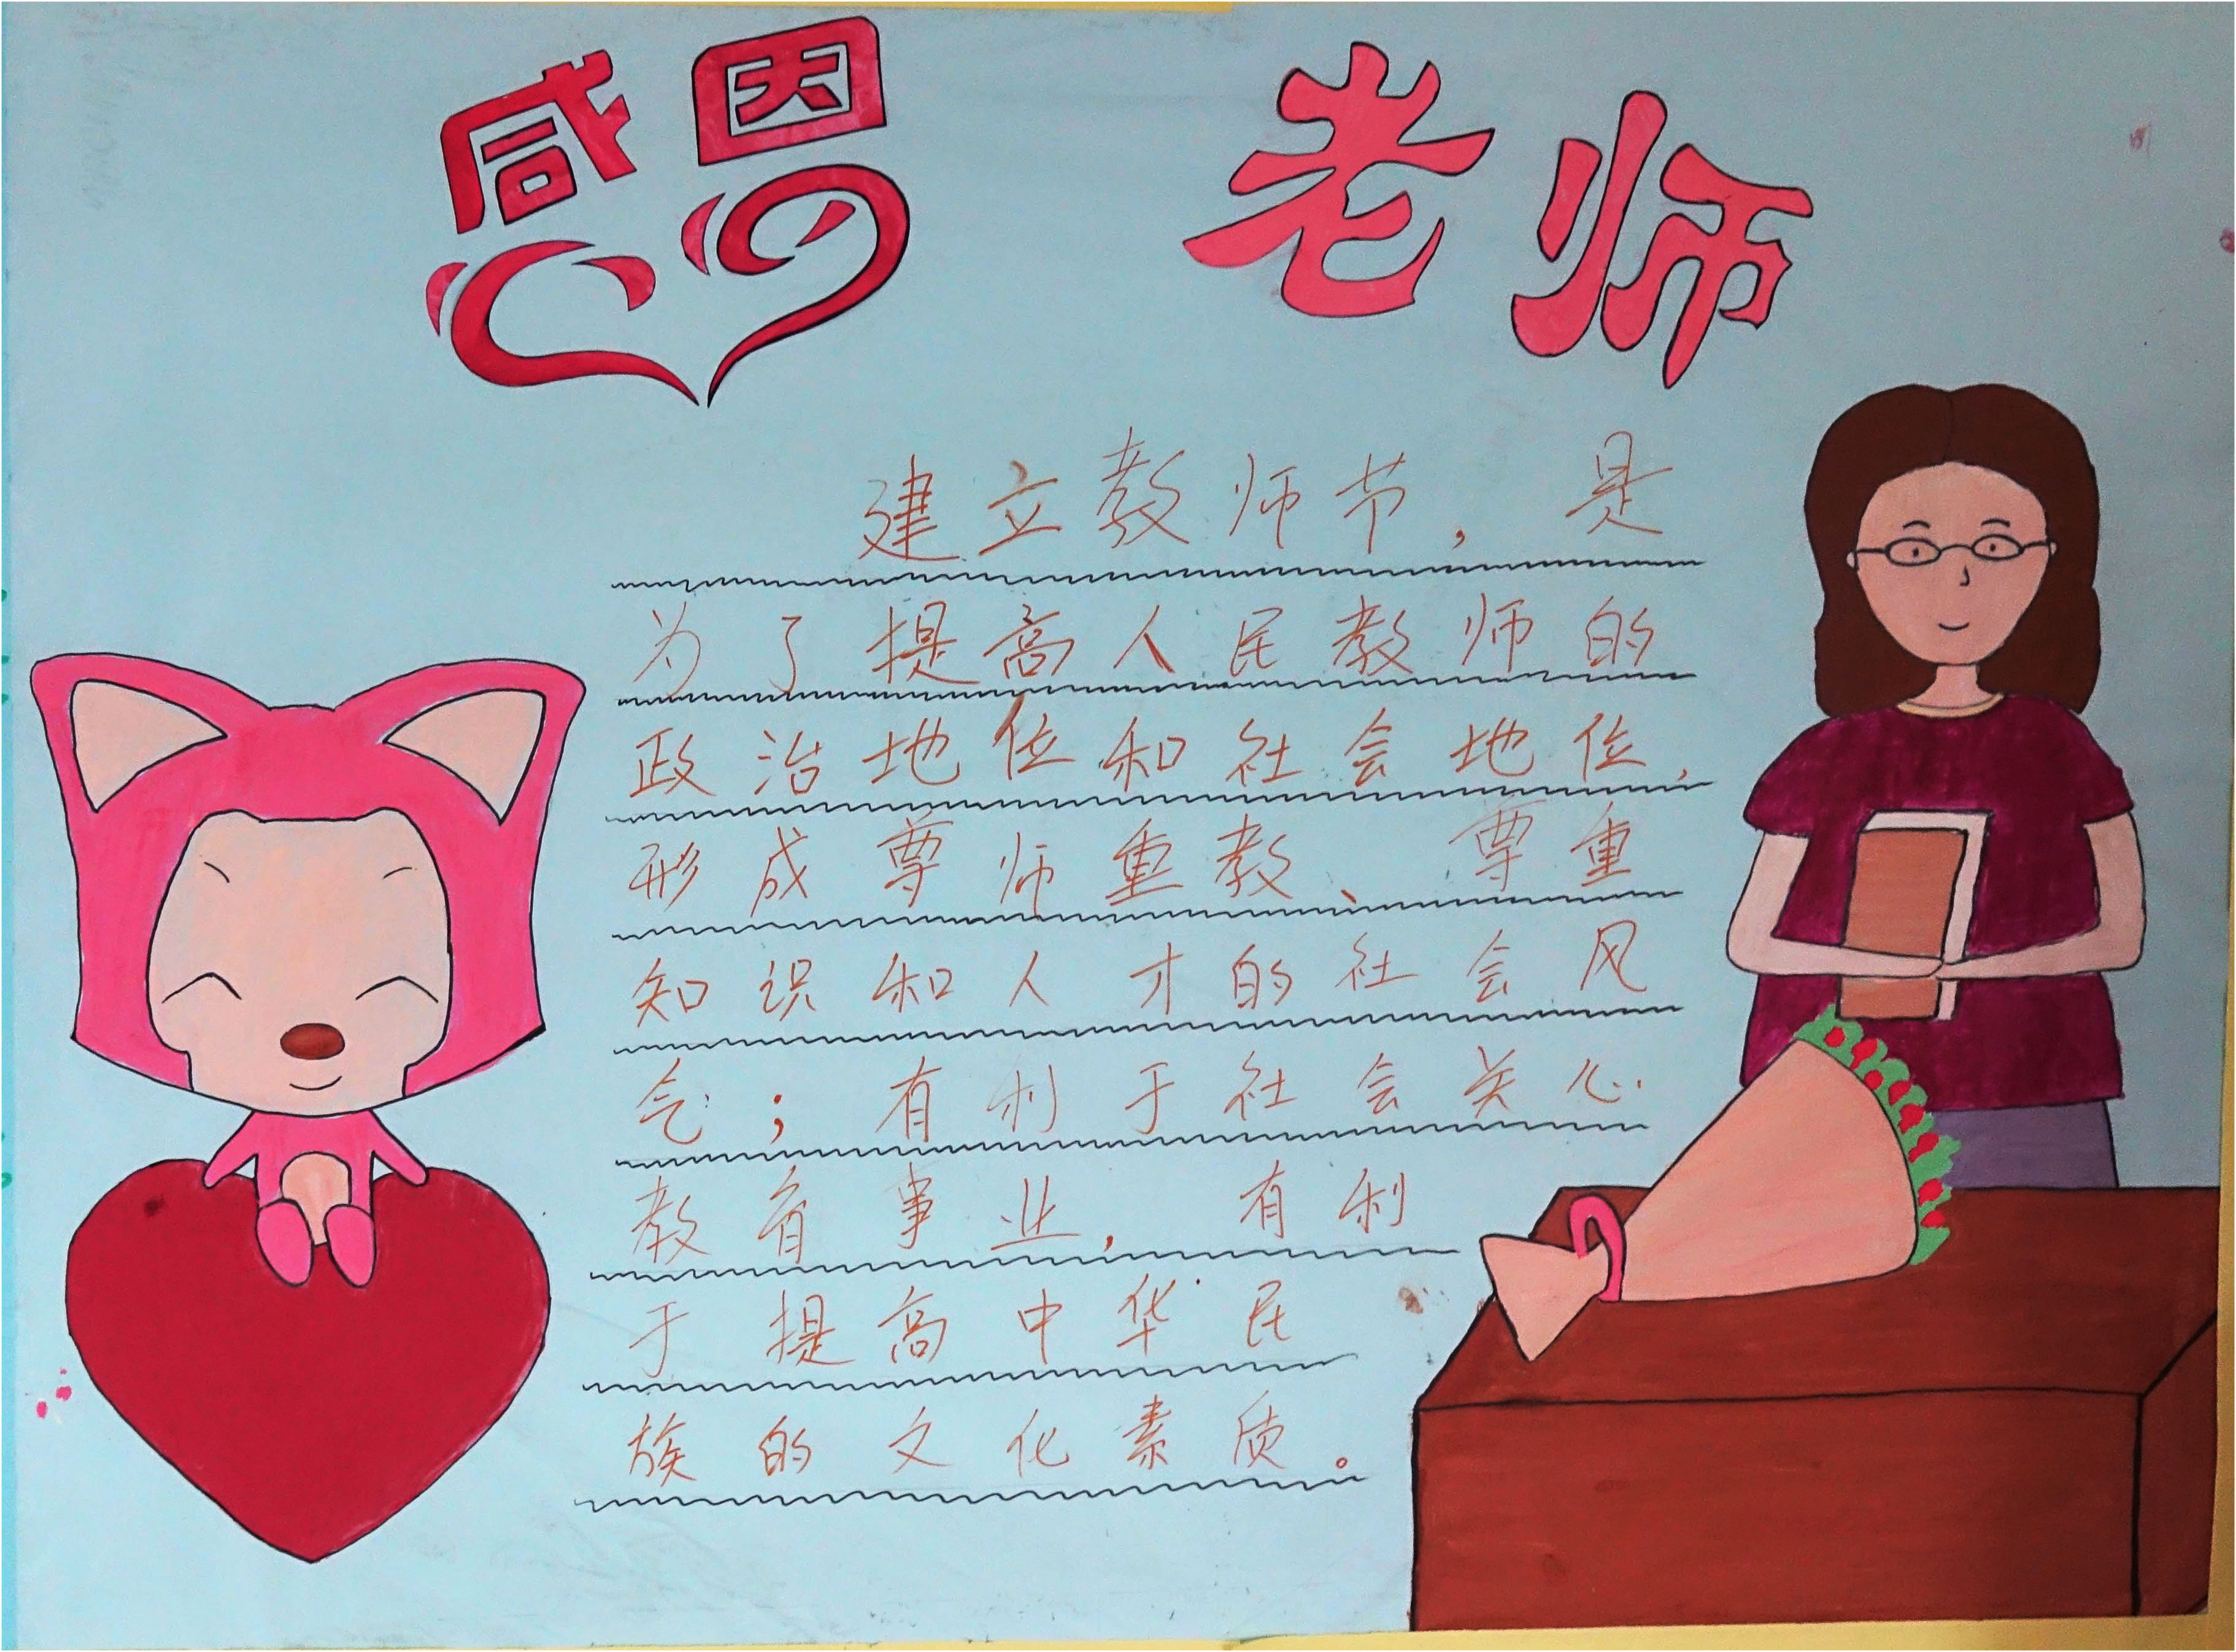 感恩 老师
建立教师节，是
为了提高人民教师的
政治地位和社会地位，
形成尊师重教、尊重
知识和人才的社会风
气；有利于社会关心
教育事业，有利
于提高中华民
族的文化素质。